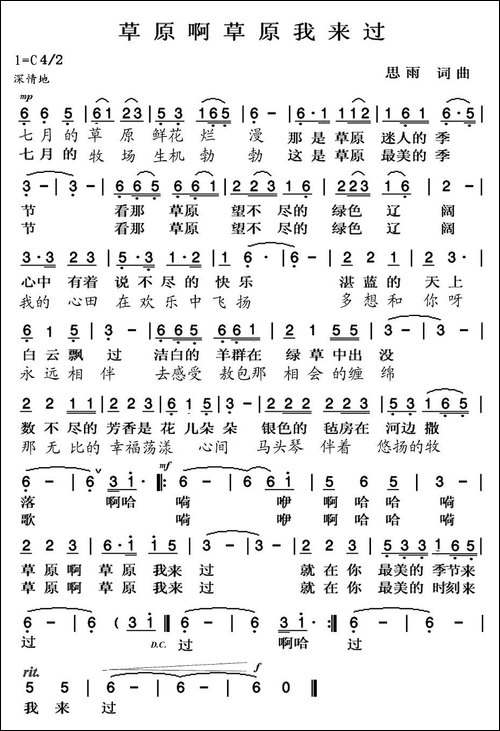 草原啊草原我来过
1=C 4/2
思雨 词曲
深情地
mp
6 6 5 | 61 23 | 5 3 165 | 6 - | 6·1 112 | 161 6·5 |
七月的 草原 鲜花 烂 漫 那是草原 迷人的 季
七月的 牧场 生机 勃 勃 这是草原 最美的 季
3 - | 3 - | 665 661 | 223 1216 | 223 16 | 2 - |
节 看那 草原 望不尽的 绿色 辽 阔
节 看那 草原 望不尽的 绿色 辽 阔
3·3 23 | 5·3 1·2 | 6 - | 6 - | 2 2 1 | 2 3 |
心中 有着 说不尽的 快乐 湛蓝的 天上
我的 心田 在欢乐中飞扬 多想和 你呀
6 1 5 | 3 - | 665 661 | 2 2 1 | 2 3 5 | 3 - |
白云飘 过 洁白的 羊群在 绿草中出 没
永远相 伴 去感受 敖包那 相会的缠 绵
2 2 | 112 | 2 1 6 1 | 2 3 | 2 2 1 | 2 3 5 3 | 165 |
数不尽的芳香是 花儿朵朵 银色的 毡房在 河边 撒
那无比的 幸福荡漾 心间 马头琴 伴着 悠扬的牧
mf
落 啊哈 嗬 咿 啊哈哈 嗬
歌 嗬 咿 啊哈哈 嗬
2 2 3 | 6·1 1 5 | 3 - | 3 - | 2 2 3 | 533 165 |
草原啊 草原 我来 过 就在你 最美的 季节来
草原啊 草原 我来 过 就在你 最美的 时刻来
6 - | 6 - ( 3 1 | 6 - | 6 3 1 :‖ 6 - | 6 - |
过 D.C. 过 啊哈 过
rit. f
5 5 | 2 - | 6 - | 6 - | 6 0 ‖
我 来 过